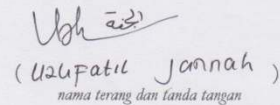 الجنة
( Uzlifatil Jannah )
nama terang dan tanda tangan